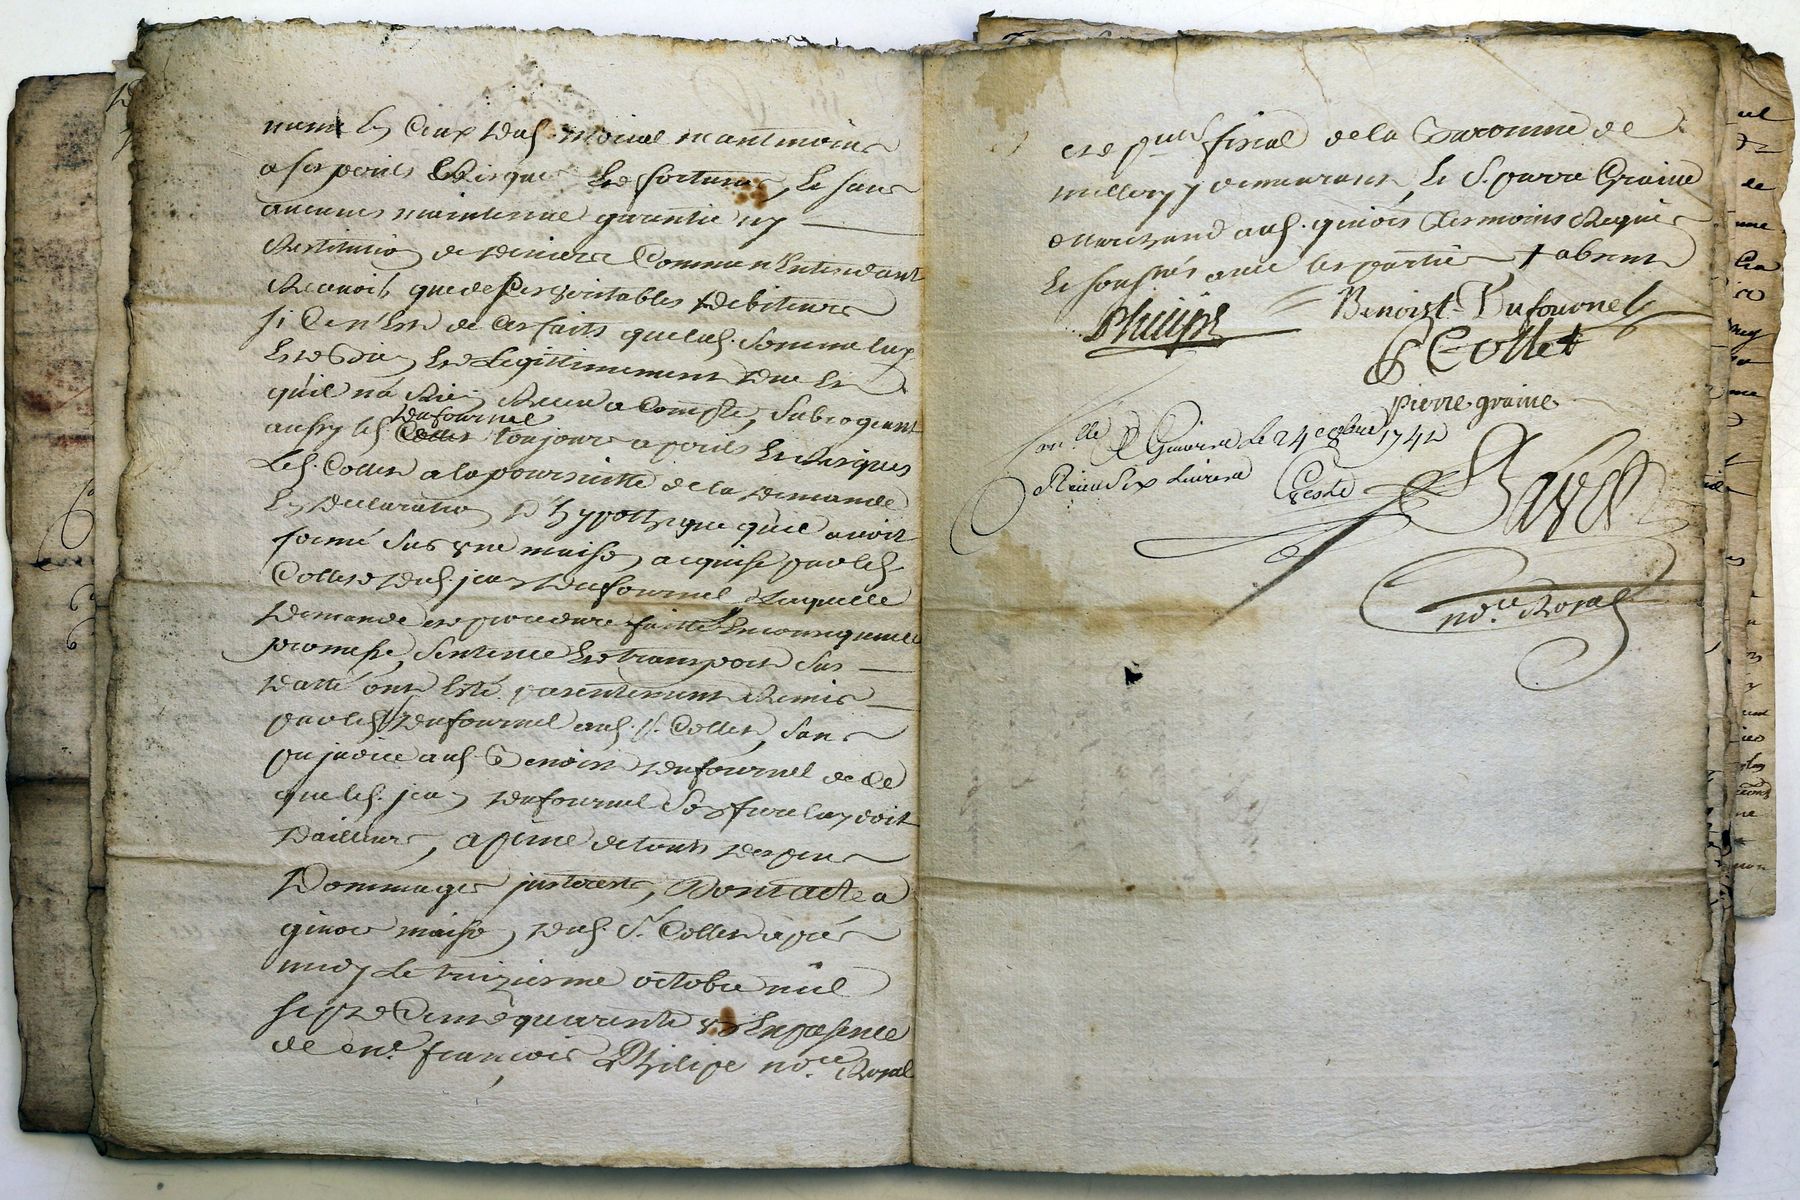 a ses perils Risques Et fortunes, Et sans
aucunes maintenue garentie ny
Restitution de deniers Comme n'Entendant
Reconoit que de ses veritables debiteurs
si Ce n'Est de Ces faits que lad. somme luy
Est bien Et Legittimement due Et
qu'il n'a Rien Receu a Compte, subrogeant
dufournel
aussy led. toujours a perils Et Risques
Led. Collet a la poursuitte de la demande
En declaration D'hypotheque qu'il avoit
formé sur une maison acquise par led.
Collet dud. jean dufournel Laquelle
demande et procedure faitte
promesse, sentence Et transport sus
datté ont Esté presentement Remis
par led. dufournel aud. Sr. Collet, sans
prejudice aud. Benoist dufournel de Ce
que led. jean dufournel son frere luy doit
D'ailleurs, a peine de tous depens
Dommages jnterests, Dont acte a
givors maison dud. Sr. Collet après
midy Le treizieme octobre mil
sept Cent quarante En presence
de me. françois Philipe nore. Royal
et fiscal de la Baronnie de
millery y demeurant, Et S. pierre Graine
Marchand aud. givors temoins Requis
Et soussnés avec les parties, absent
Philipe
Benoist Dufournel
Collet
pierre graine
Le 24 1741
Reçu six Livres
nore. Royal